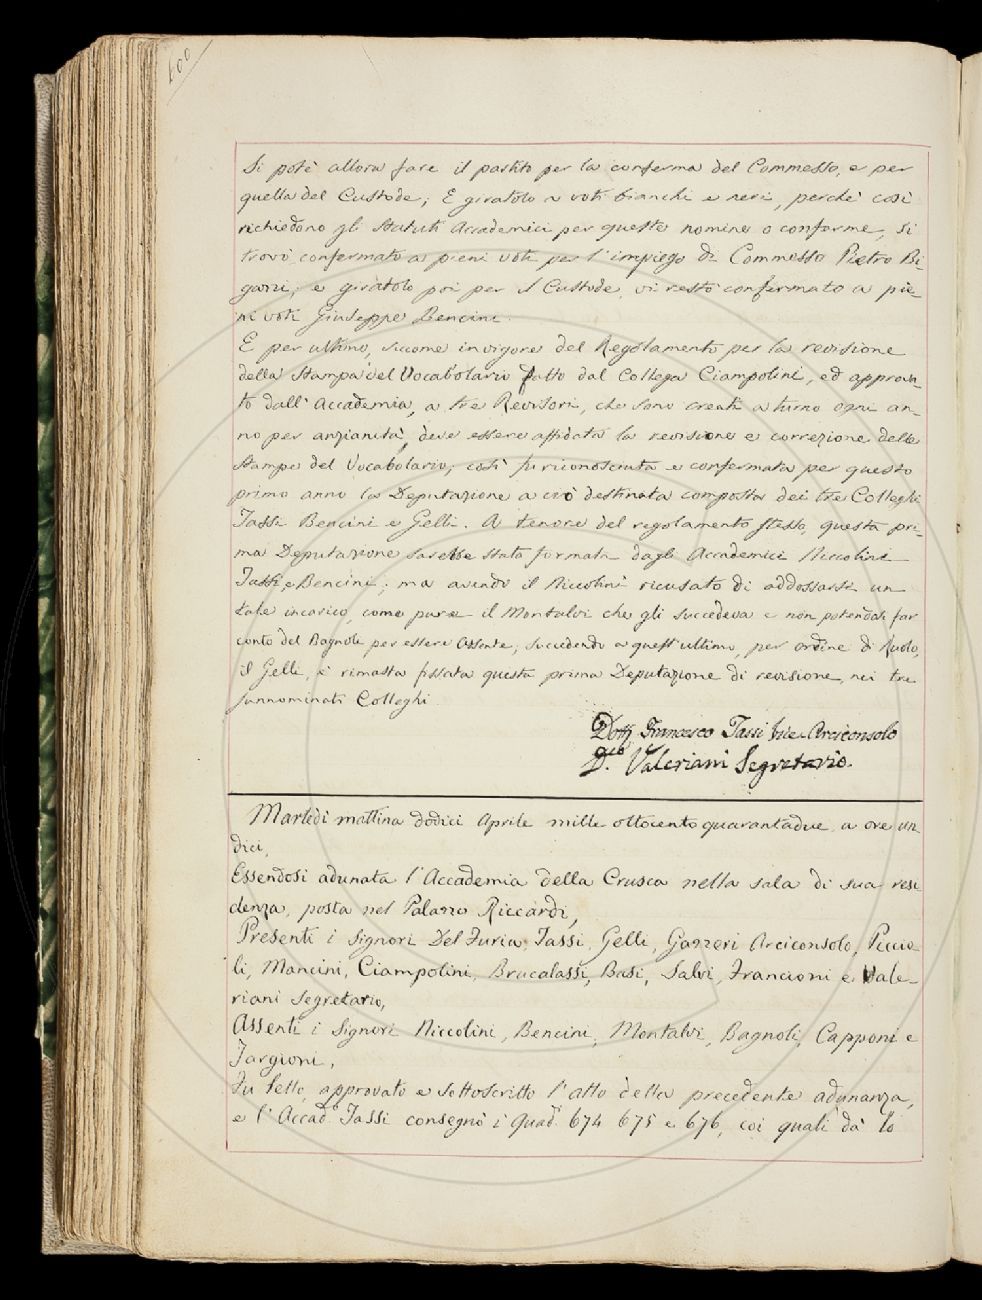 400
Si potè allora fare il partito per la conferma del Commesso, e per
quella del Custode; E giratolo a voti bianchi e neri, perchè così
richiedono gli Statuti Accademici per queste nomine o conferme, si
trovò confermato a pieni voti per l'impiego di Commesso Pietro Bi-
gazzi; e giratolo poi per il Custode, vi restò confermato a pie-
ni voti Giuseppe Bencini.
E per ultimo, siccome in vigore del Regolamento per la revisione
della Stampa del Vocabolario fatto dal Collega Ciampolini, ed approva-
to dall'Accademia, a tre Revisori, che sono creati a turno ogni an-
no per anzianità, deve essere affidata la revisione e correzione delle
stampe del Vocabolario; così fu riconosciuta e confermata per questo
primo anno la Deputazione a ciò destinata composta dei tre Colleghi
Tassi Bencini e Gelli. A tenore del regolamento stesso, questa pri-
ma Deputazione sarebbe stata formata dagli Accademici Niccolini
Tassi, e Bencini; ma avendo il Niccolini ricusato di addossarsi un
tale incarico, come pure il Montalvi che gli succedeva e non potendosi far
conto del Bagnoli per essere assente, succedendo a quest'ultimo, per ordine di Ruolo,
il Gelli, è rimasta fissata questa prima Deputazione di revisione, nei tre
sunnominati Colleghi
Dott. Francesco Tassi Vice-Arciconsolo
D. Valeriani Segretario.
Martedì mattina dodici Aprile mille ottocento quarantadue a ore un
dici,
Essendosi adunata l'Accademia della Crusca nella sala di sua resi
denza, posta nel Palazzo Riccardi,
Presenti i Signori Del Furia, Tassi, Gelli, Gazzeri Arciconsolo, Piccio-
li, Mancini, Ciampolini, Brucalassi, Basi, Salvi, Francioni e Vale-
riani Segretario,
Assenti i Signori Niccolini, Bencini, Montalvi, Bagnoli, Capponi e
Targioni,
Fu letto, approvato e sottoscritto l'atto della precedente adunanza,
e l'Accad.º Tassi consegnò i Quad. 674 675 e 676, coi quali dà lo